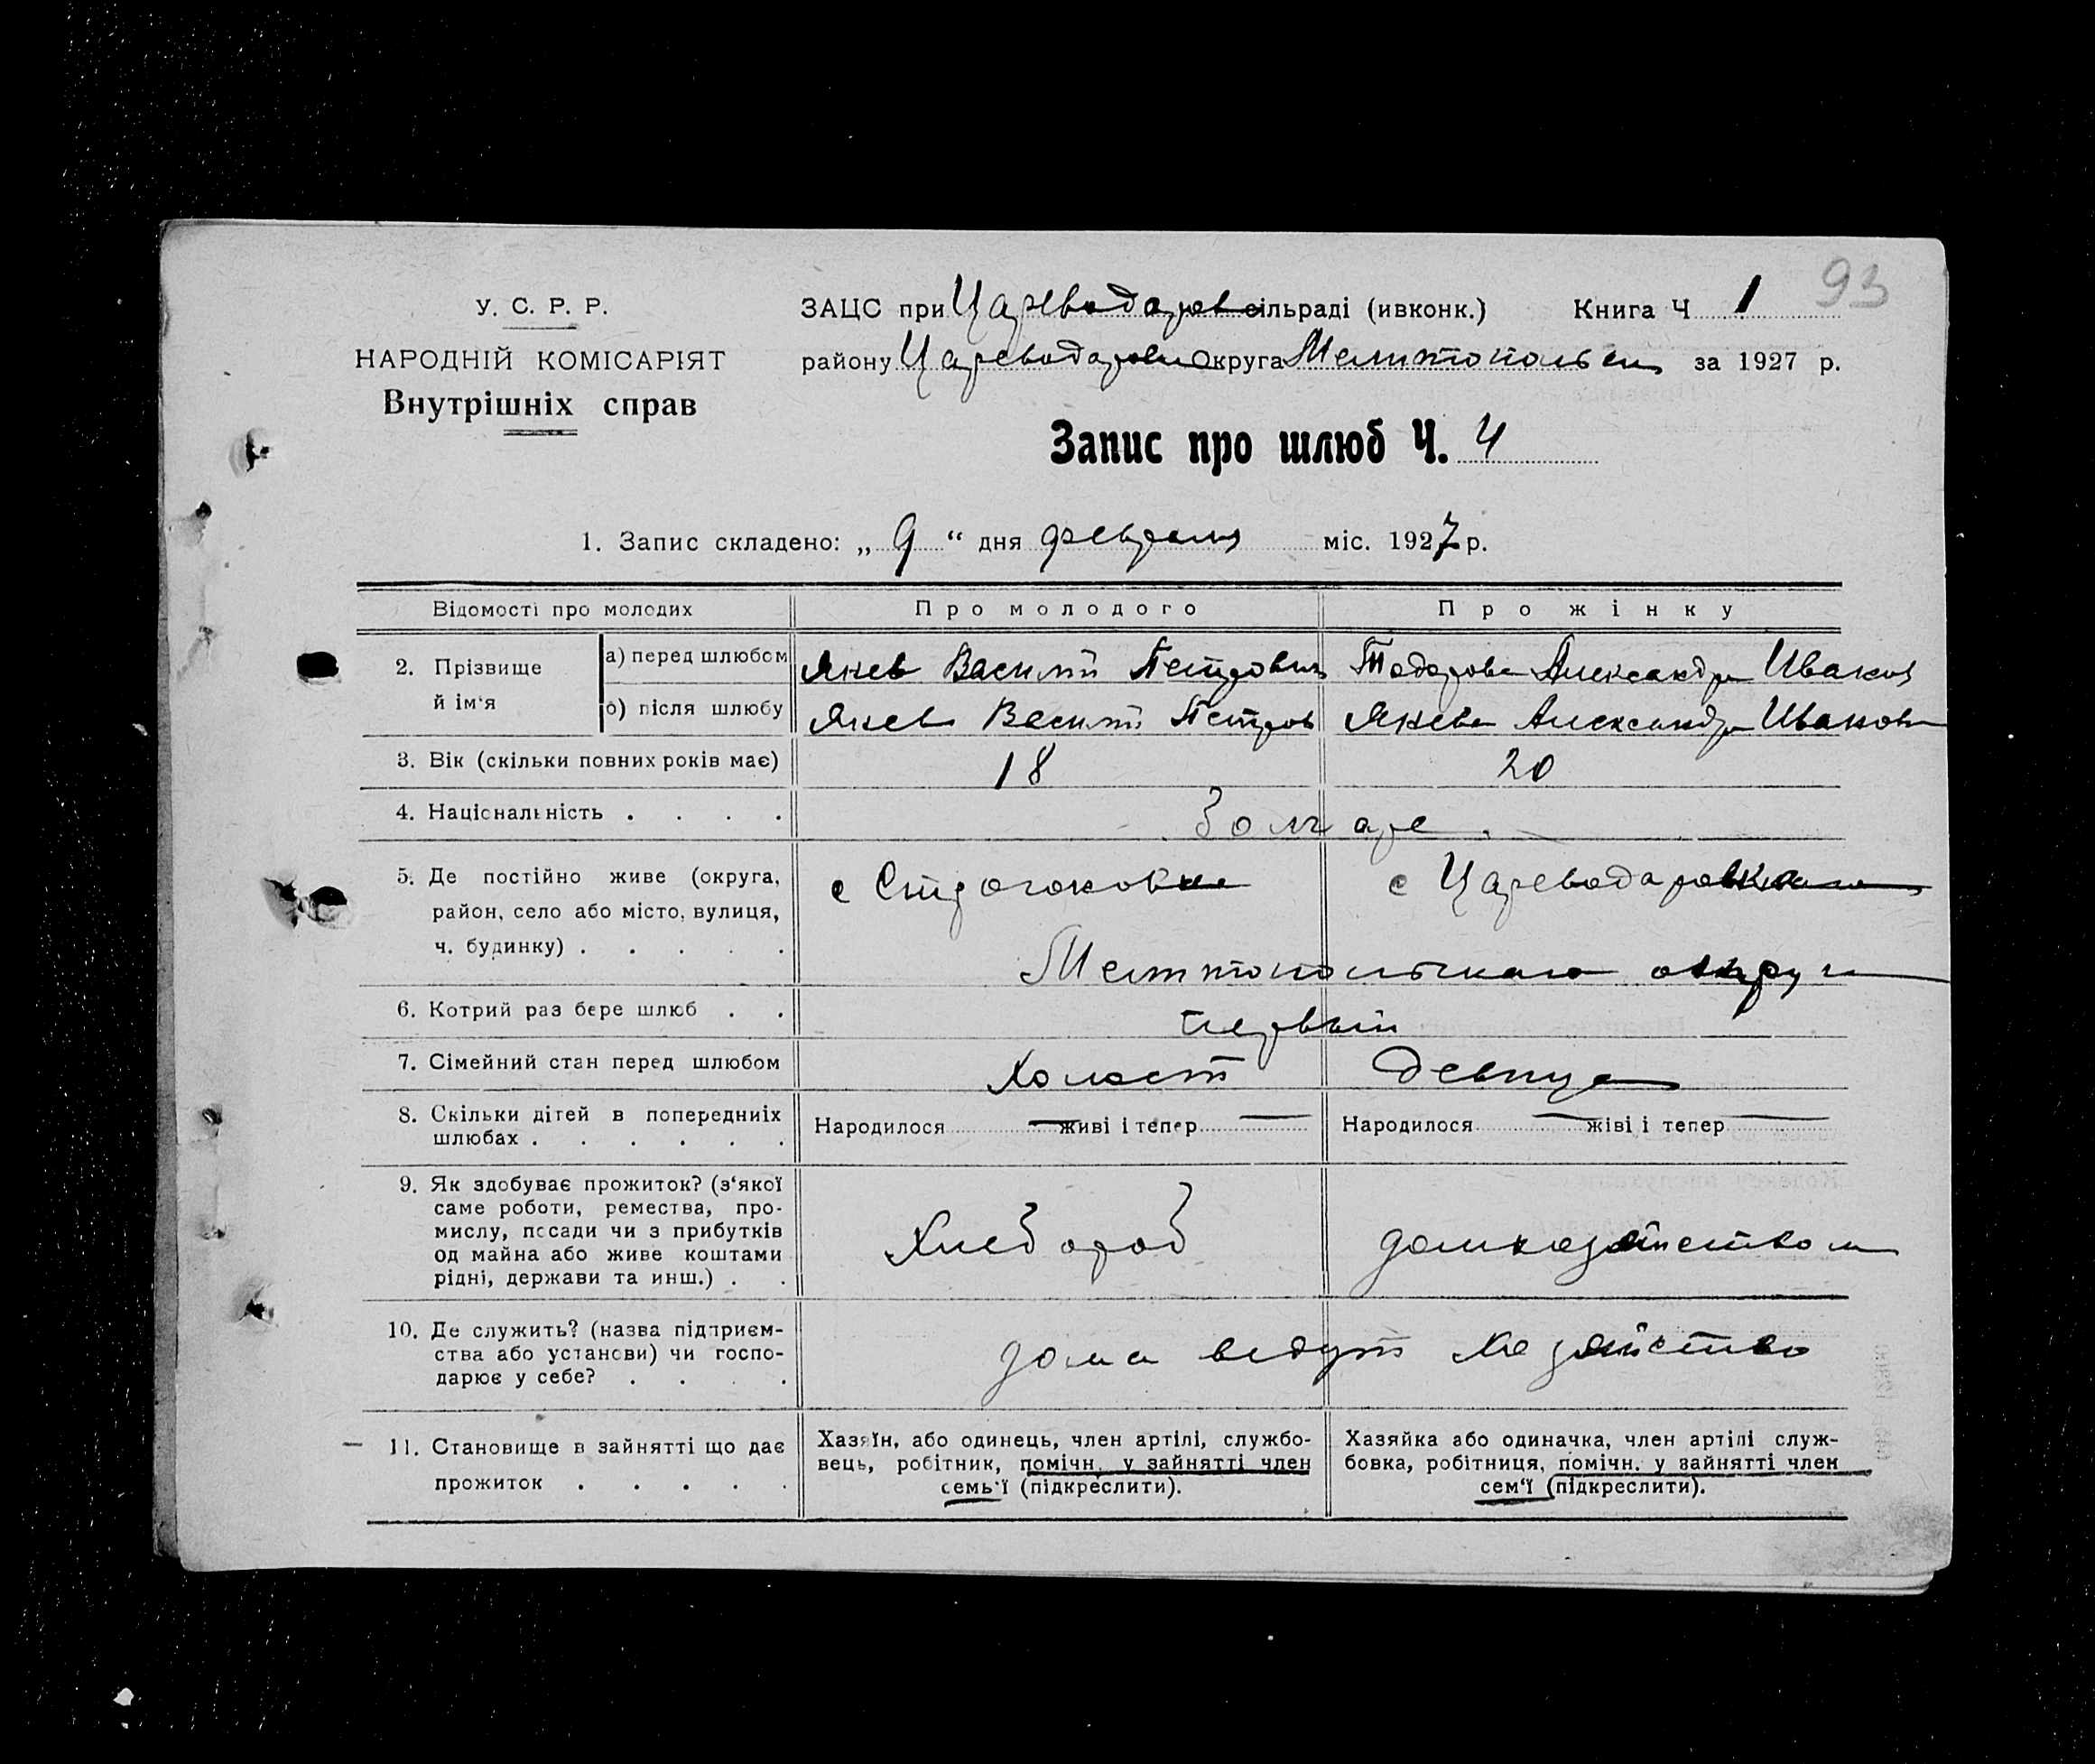 93
У. С. Р. Р.
НАРОДНІЙ КОМІСАРІЯТ
Внутрішніх справ
ЗАЦС при Цареводаров сільраді (ивконк.) Книга Ч 1
району Цареводаровск Округа Мелитопольск за 1927 р.
Запис про шлюб Ч. 4
1. Запис складено: „ 9 “ дня февраля міс. 1927 р.
Відомості про молодих Про молодого Про жінку
2. Прізвище й ім‘я
а) перед шлюбом Янев Василий Петрович Тодорова Александра Иванов
б) після шлюбу Янев Василий Петров Янева Александра Иванов
3. Вік (скільки повних років має) 18 20
4. Національність . . . . болгаре.
5. Де постійно живе (округа, с Строгоновка с Цареводаровка
район, село або місто, вулиця,
ч. будинку) . . . . . Мелитопольского округа
6. Котрий раз бере шлюб . . первый
7. Сімейний стан перед шлюбом Холост девица
8. Скільки дітей в попередниіх
шлюбах . . . . . .
Народилося — живі і тепер — Народилося — жіві і тепер —
9. Як здобуває прожиток? (з‘якої
саме роботи, ремества, про-
мислу, посади чи з прибутків
од майна або живе коштами
рідні, держави та инш.) . .
Хлебороб домхозяйством
10. Де служить? (назва підприєм-
ства або установи) чи госпо-
дарює у себе? . . . .
дома ведут хозяйство
— 11. Становище в зайнятті що дає
прожиток . . . . .
Хазяїн, або одинець, член артілі, службо-
вець, робітник, помічн. у зайнятті член
семь‘ї (підкреслити).
Хазяйка або одиначка, член артілі служ-
бовка, робітниця, помічн. у зайнятті член
сем‘ї (підкреслити).